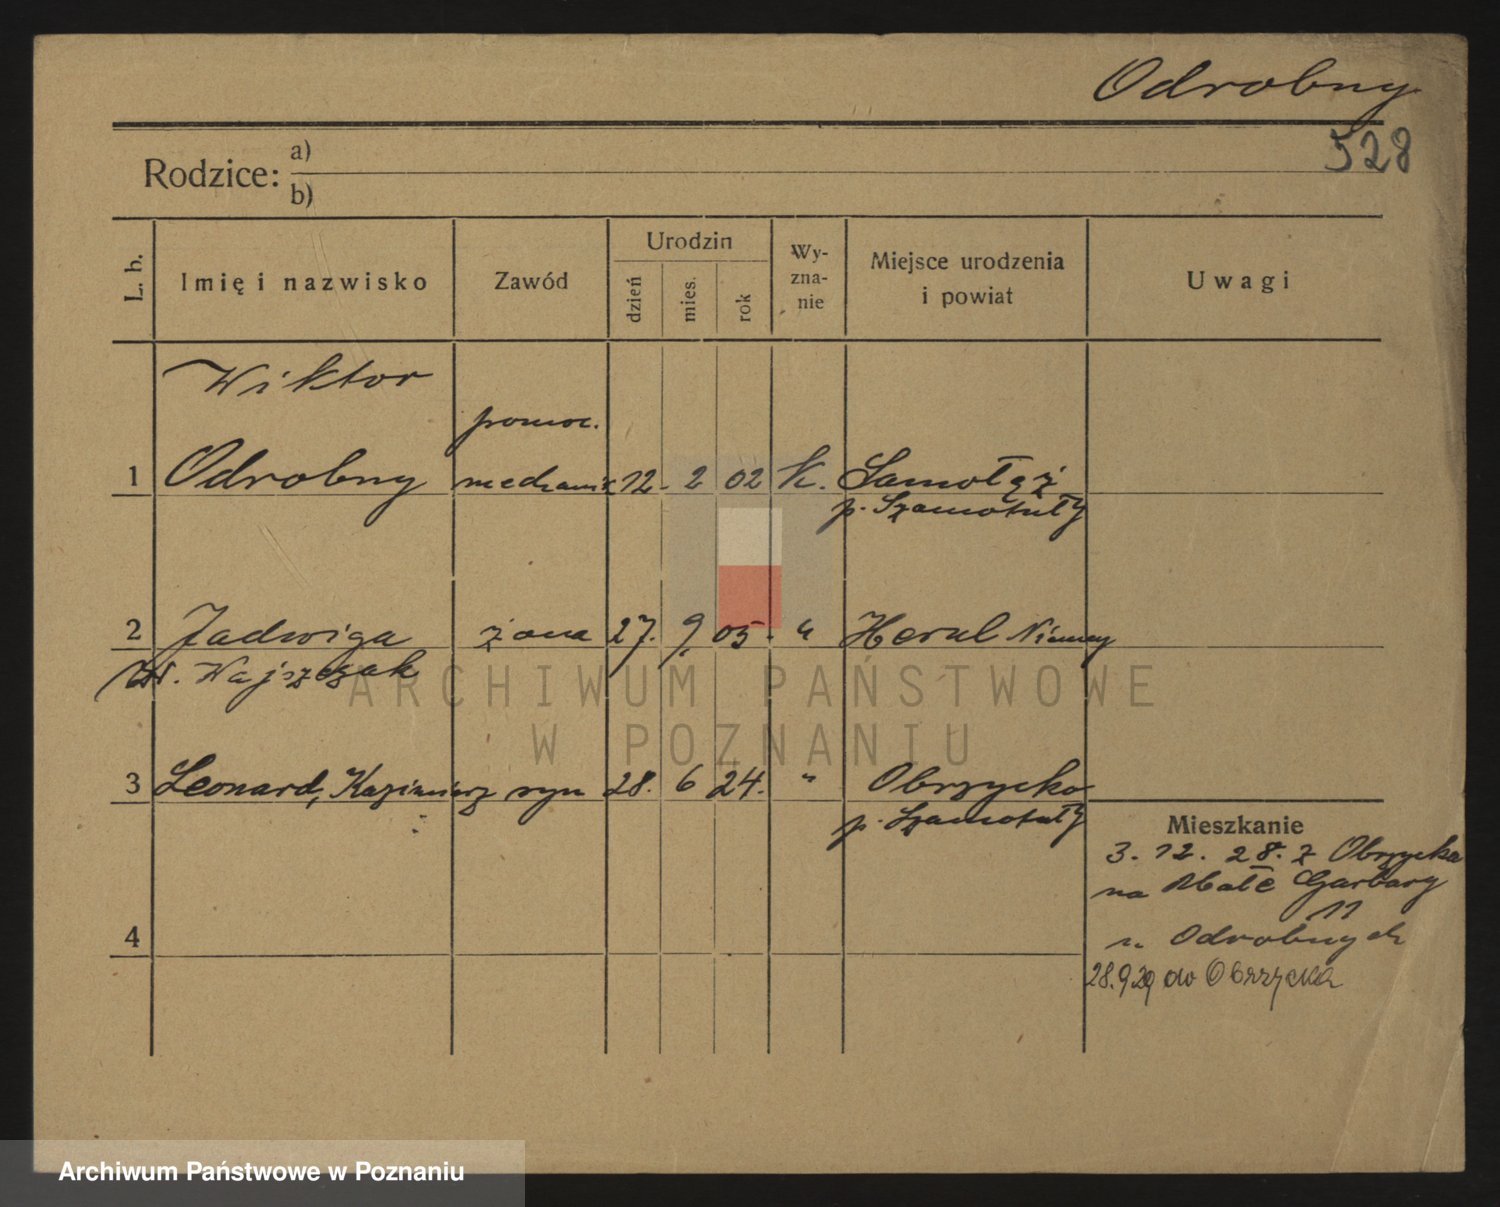 Odrobny
528
Rodzice: a)
b)
L. b. Imię i nazwisko Zawód Urodzin dzień mies. rok Wy-zna-nie Miejsce urodzenia i powiat Uwagi
Wiktor
pomoc.
1 Odrobny mechanik 12. 2 02 k. Samołęż
p. Szamotuły
2 Jadwiga żona 27. 9. 05. " Niemcy
Wajszczak
3 Leonard, Kazimierz syn 28. 6 24. " Obrzycko
p. Szamotuły
Mieszkanie
3. 12. 28. z Obrzycka
na Małe Garbary
11
4
u Odrobnych
28.9 29 do Obrzycka
ARCHIWUM PAŃSTWOWE
W POZNANIU
Archiwum Państwowe w Poznaniu